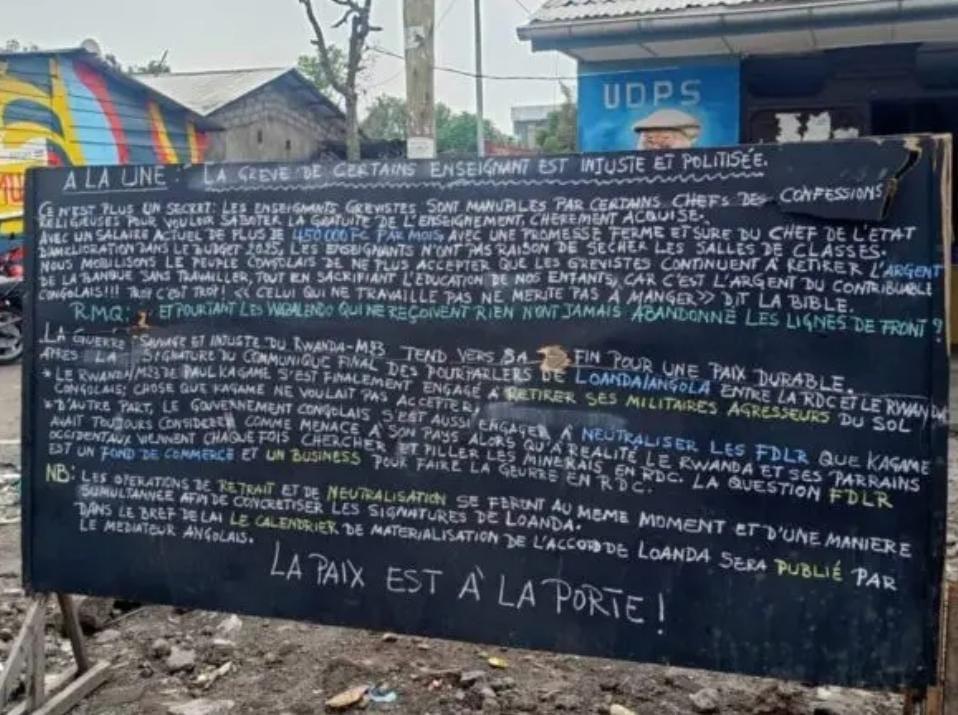 UDPS
A LA UNE : LA GREVE DE CERTAINS ENSEIGNANT EST INJUSTE ET POLITISÉE.
CE N'EST PLUS UN SECRET: LES ENSEIGNANTS GREVISTES SONT MANUPILES PAR CERTAINS CHEFS DES CONFESSIONS
RELIGIEUSES POUR VOULOIR SABOTER LA GRATUITE DE L'ENSEIGNEMENT, CHEREMENT ACQUISE.
AVEC UN SALAIRE ACTUEL DE PLUS DE 450000 FC PAR MOIS, AVEC UNE PROMESSE FERME ET SURE DU CHEF DE L'ETAT
D'AMELIORATION DANS LE BUDGET 2025, LES ENSEIGNANTS N'ONT PAS RAISON DE SECHER LES SALLES DE CLASSES.
NOUS MOBILISONS LE PEUPLE CONGOLAIS DE NE PLUS ACCEPTER QUE LES GREVISTES CONTINUENT À RETIRER L'ARGENT
DE LA BANQUE SANS TRAVAILLER, TOUT EN SACRIFIANT L'ÉDUCATION DE NOS ENFANTS, CAR C'EST L'ARGENT DU CONTRIBUABLE
CONGOLAIS!!! TROP C'EST TROP! << CELUI QUI NE TRAVAILLE PAS NE MERITE PAS À MANGER>> DIT LA BIBLE.
RMQ: ET POURTANT LES WAZALENDO QUI NE REÇOIVENT RIEN N'ONT JAMAIS ABANDONNÉ LES LIGNES DE FRONT ?
LA GUERRE SAUVAGE ET INJUSTE DU RWANDA-M23 TEND VERS SA FIN POUR UNE PAIX DURABLE.
APRES LA SIGNATURE DU COMMUNIQUE FINAL DES POURPARLERS DE LOANDA/ANGOLA ENTRE LA RDC ET LE RWANDA
* LE RWANDA/M23 DE PAUL KAGAME S'EST FINALEMENT ENGAGÉ À RETIRER SES MILITAIRES AGRESSEURS DU SOL
CONGOLAIS; CHOSE QUE KAGAME NE VOULAIT PAS ACCEPTER;
* D'AUTRE PART, LE GOUVERNEMENT CONGOLAIS S'EST AUSSI ENGAGE À NEUTRALISER LES FDLR QUE KAGAME
AVAIT TOUJOURS CONSIDERER COMME MENACE À SON PAYS ALORS QU'À REALITÉ LE RWANDA ET SES PARRAINS
OCCIDENTAUX VIENNENT CHAQUE FOIS CHERCHER ET PILLER LES MINERAIS EN RDC. LA QUESTION FDLR
EST UN FOND DE COMMERCE ET UN BUSINESS POUR FAIRE LA GEURRE EN RDC.
NB: LES OPERATIONS DE RETRAIT ET DE NEUTRALISATION SE FERONT AU MEME MOMENT ET D'UNE MANIERE
SUMULTANNÉE AFIN DE CONCRETISER LES SIGNATURES DE LOANDA.
DANS LE BREF DELAI LE CALENDRIER DE MATERIALISATION DE L'ACCORD DE LOANDA SERA PUBLIÉ PAR
LE MEDIATEUR ANGOLAIS.
LA PAIX EST À LA PORTE !